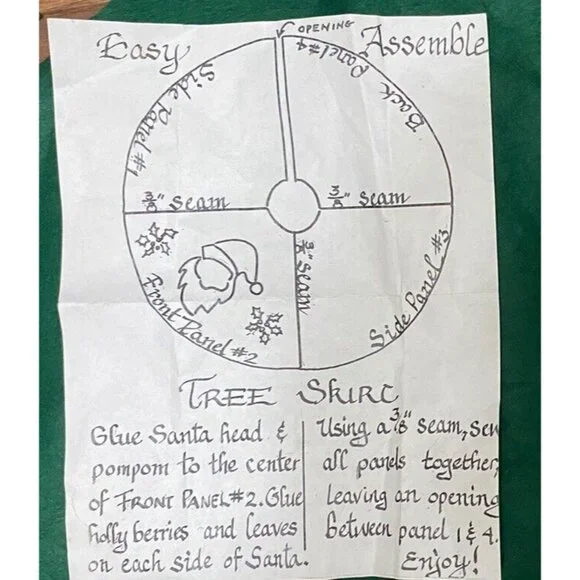 Easy
OPENING
Assemble
Side Panel #1
Back Panel #4
3/8" Seam
3/8" Seam
3/8" Seam
Front Panel #2
Side Panel #3
TREE Skirt
Glue Santa head &
pompom to the center
of FRONT PANEL #2. Glue
holly berries and leaves
on each side of Santa.
Using a 3/8" seam, sew
all panels together,
leaving an opening
between panel 1 & 4.
Enjoy!